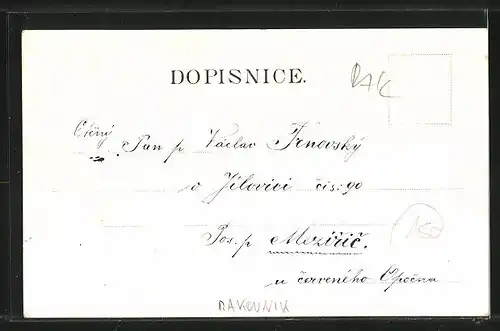 DOPISNICE.
RAK
Ctěný
Pan p Václav Trnovský
v Jílovici čís: 90
Pos. p Meziříč.
u červeného Opočna
150
RAKOVNIK